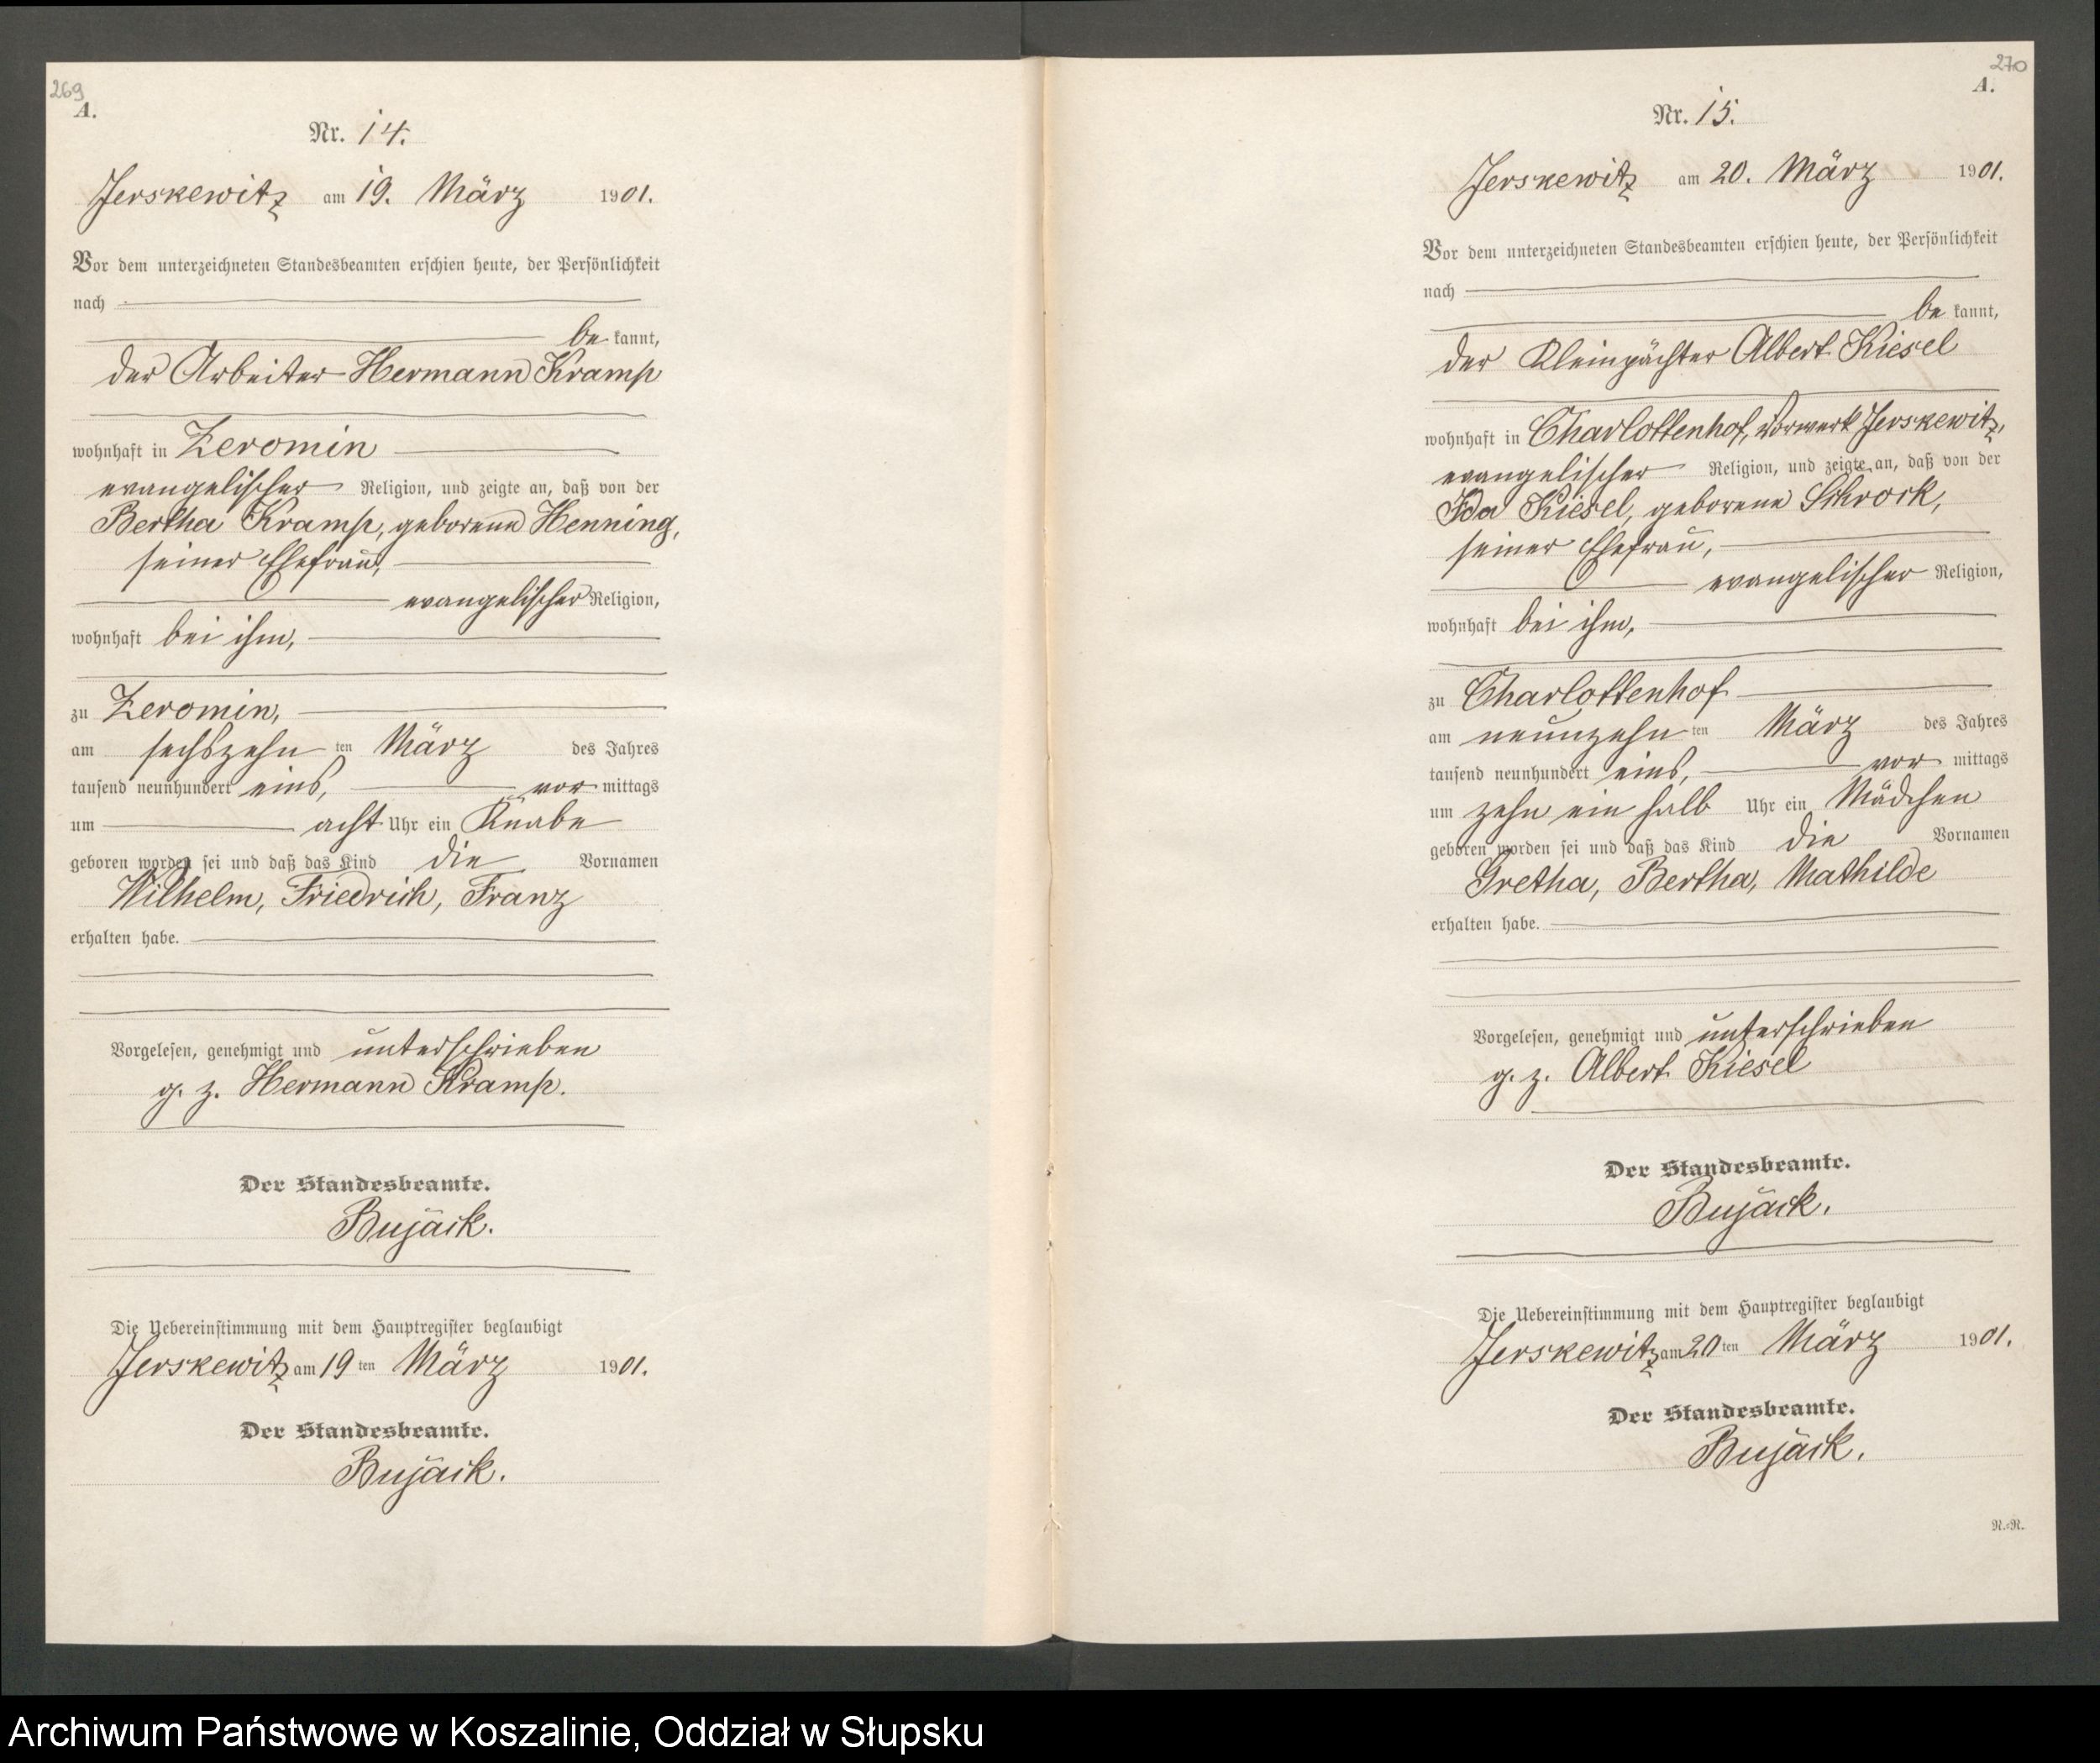 269
A.
Nr. 14.
Jerskewitz am 19. März 1901.
Vor dem unterzeichneten Standesbeamten erschien heute, der Persönlichkeit
nach
be kannt,
der Arbeiter Hermann Kramp
wohnhaft in Zeromin
evangelischer Religion, und zeigte an, daß von der
Bertha Kramp, geborene Henning,
seiner Ehefrau,
evangelischer Religion,
wohnhaft bei ihm,
zu Zeromin,
am sechszehn ten März des Jahres
tausend neunhundert eins, vor mittags
um acht Uhr ein Knabe
geboren worden sei und daß das Kind die Vornamen
Wilhelm, Friedrich, Franz
erhalten habe.
Vorgelesen, genehmigt und unterschrieben
g. z. Hermann Kramp.
Der Standesbeamte.
Bujack.
Die Uebereinstimmung mit dem Hauptregister beglaubigt
Jerskewitz am 19 ten März 1901.
Der Standesbeamte.
Bujack.
270
A.
Nr. 15.
Jerskewitz am 20. März 1901.
Vor dem unterzeichneten Standesbeamten erschien heute, der Persönlichkeit
nach
be kannt,
der Kleinpächter Albert Kiesel
wohnhaft in Charlottenhof, Vorwerk Jerskewitz,
evangelischer Religion, und zeigte an, daß von der
Ida Kiesel, geborene Schrock,
seiner Ehefrau,
evangelischer Religion,
wohnhaft bei ihm,
zu Charlottenhof
am neunzehn ten März des Jahres
tausend neunhundert eins, vor mittags
um zehn ein halb Uhr ein Mädchen
geboren worden sei und daß das Kind die Vornamen
Gretha, Bertha, Mathilde
erhalten habe.
Vorgelesen, genehmigt und unterschrieben
g. z. Albert Kiesel
Der Standesbeamte.
Bujack.
Die Uebereinstimmung mit dem Hauptregister beglaubigt
Jerskewitz am 20 ten März 1901.
Der Standesbeamte.
Bujack.
R.-R.
Archiwum Państwowe w Koszalinie, Oddział w Słupsku